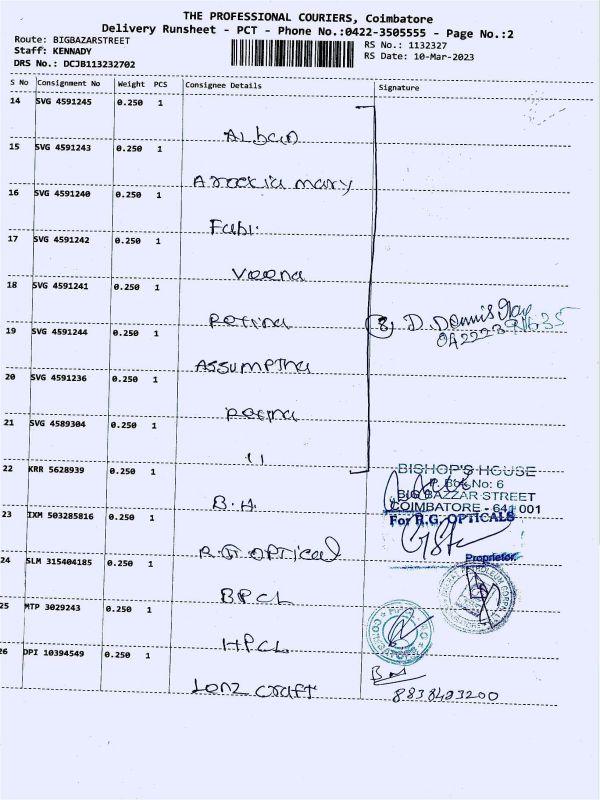 THE PROFESSIONAL COURIERS, Coimbatore
Delivery Runsheet - PCT - Phone No.:0422-3505555 - Page No.:2
Route: BIGBAZARSTREET
Staff: KENNADY
DRS No.: DCJB113232702
RS No.: 1132327
RS Date: 10-Mar-2023
S No Consignment No Weight PCS Consignee Details Signature
14 SVG 4591245 0.250 1
Alban
15 SVG 4591243 0.250 1
Arockia mary
16 SVG 4591240 0.250 1
Fabi
17 SVG 4591242 0.250 1
Veena
18 SVG 4591241 0.250 1
8 D. Dennis
19 SVG 4591244 0.250 1
ASSUMPTHA
20 SVG 4591236 0.250 1
21 SVG 4589304 0.250 1
11
22 KRR 5628939 0.250 1
B.H.
BISHOP'S HOUSE
P. Box No: 6
BIG BAZZAR STREET
COIMBATORE - 641 001
23 IXM 503285816 0.250 1
R.G. OPTICAL
For R.G. OPTICALS
Proprietor.
24 SLM 315404185 0.250 1
BPCL
25 MTP 3029243 0.250 1
HPCL
26 DPI 10394549 0.250 1
Lenz craft
8838493200